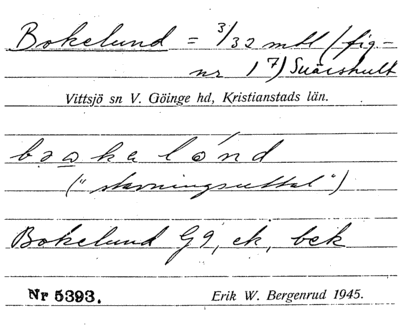 Bokelund = 3/32 mtl (fig.-
nr 17) Svarshult
Vittsjö sn V. Göinge hd, Kristianstads län.
b o a k a l ó n d
("stavningsuttal")
Bokelund G9, ek, bek
Nr 5393. Erik W. Bergenrud 1945.